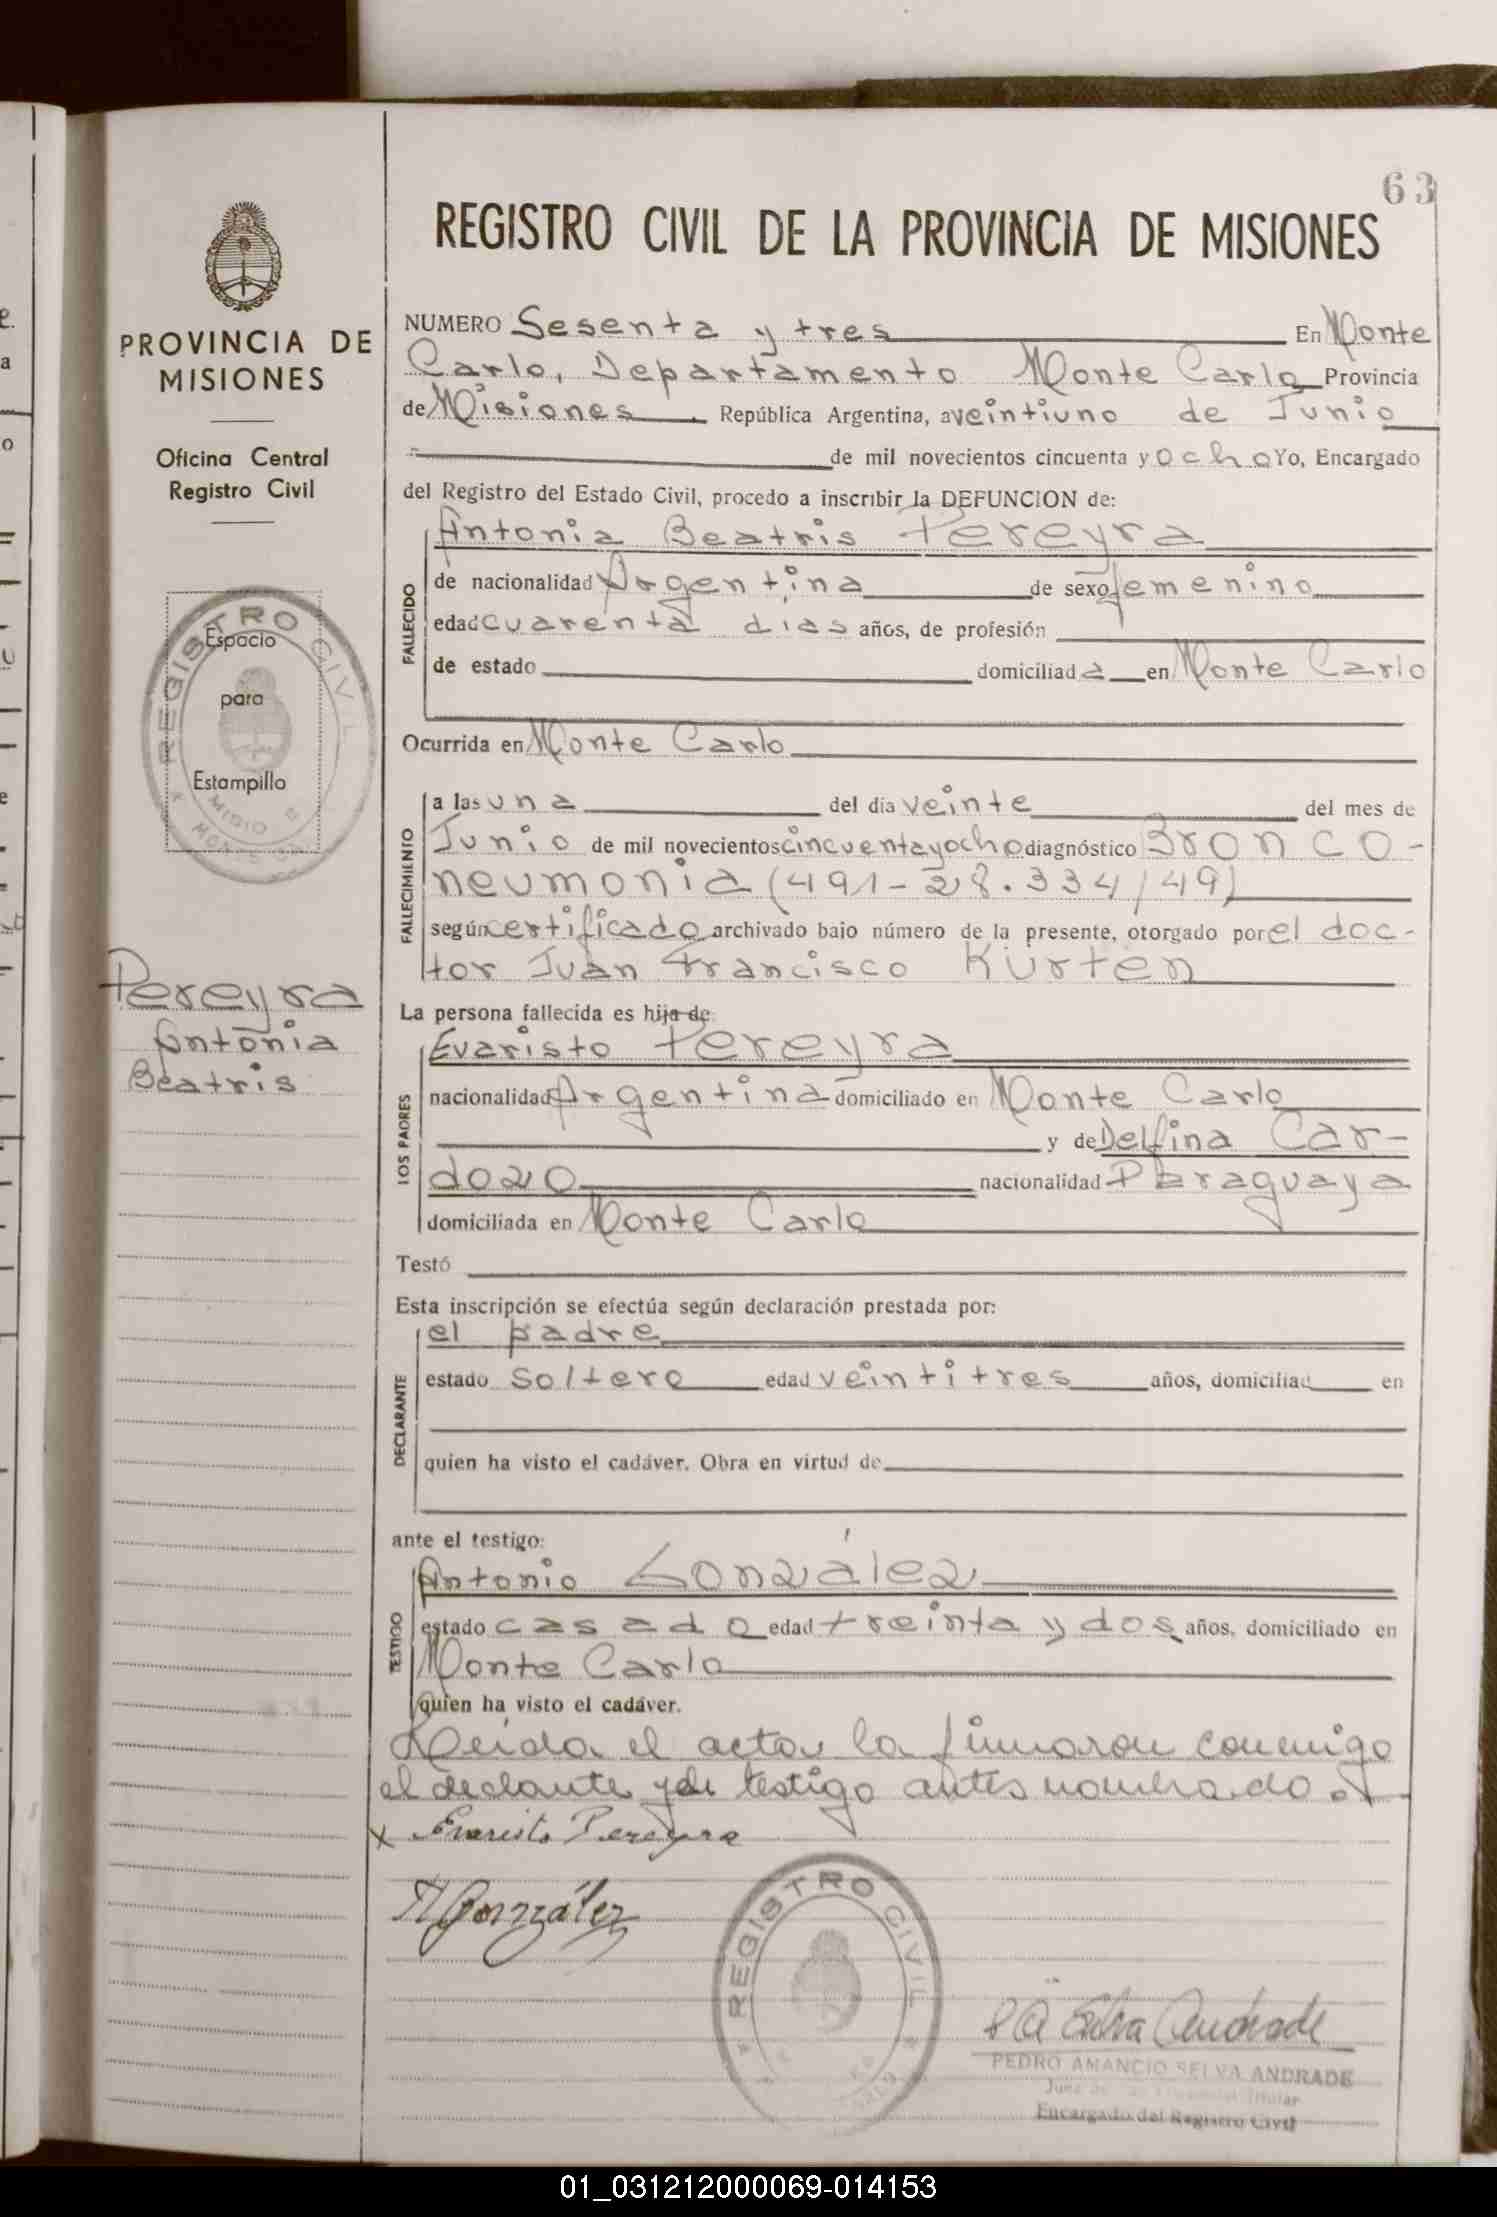 63
REGISTRO CIVIL DE LA PROVINCIA DE MISIONES
PROVINCIA DE
MISIONES
Oficina Central
Registro Civil
REGISTRO CIVIL
Espacio
para
Estampilla
Pereyra
Antonia
Beatris
NUMERO Sesenta y tres En Monte
Carlo, Departamento Monte Carlo Provincia
de Misiones República Argentina, a veintiuno de Junio
de mil novecientos cincuenta y ocho Yo, Encargado
del Registro del Estado Civil, procedo a inscribir la DEFUNCION de:
FALLECIDO
Antonia Beatris Pereyra
de nacionalidad Argentina de sexo femenino
edad cuarenta dias años, de profesión
de estado domiciliad a en Monte Carlo
Ocurrida en Monte Carlo
FALLECIMIENTO
a las una del día veinte del mes de
Junio de mil novecientos cincuentayocho diagnóstico Bronco-
neumonia (491-28.334/49)
según certificado archivado bajo número de la presente, otorgado por el doc-
tor Juan Francisco Kürten
La persona fallecida es hija de
LOS PADRES
Evaristo Pereyra
nacionalidad Argentina domiciliado en Monte Carlo
y de Delfina Car-
dozo nacionalidad Paraguaya
domiciliada en Monte Carlo
Testó
Esta inscripción se efectúa según declaración prestada por:
DECLARANTE
el padre
estado soltero edad veintitres años, domiciliad en
quien ha visto el cadáver. Obra en virtud de
ante el testigo:
TESTIGO
Antonio González
estado casado edad treinta y dos años, domiciliado en
Monte Carlo
quien ha visto el cadáver.
Leída el acta, la firmaron conmigo
el declante y el testigo antes nombrado.
x Evaristo Pereyra
A González
REGISTRO CIVIL
P A Selva Andrade
PEDRO AMANCIO SELVA ANDRADE
Encargado del Registro Civil
01_031212000069-014153